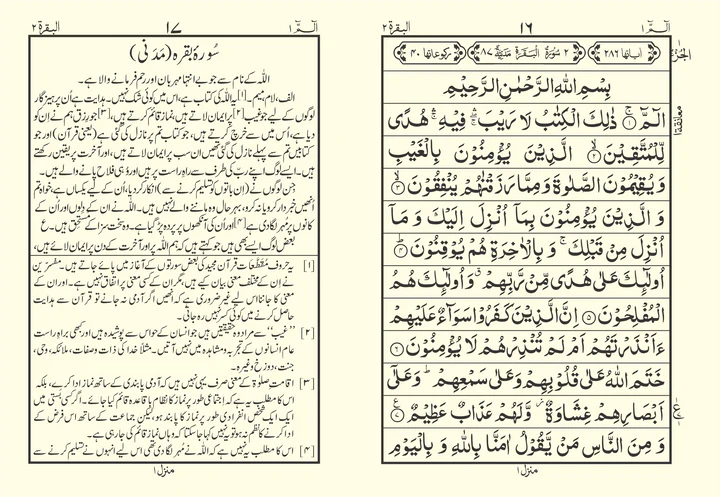 البقرة ٢
١٦
الٓمّٓ ١
٢ سُوْرَةُ الْبَقَرَةِ مَدَنِيَّةٌ ٨٧
اٰیاتها ٢٨٦
رکوعاتها ٤٠
بِسْمِ اللهِ الرَّحْمٰنِ الرَّحِيْمِ
الٓمّٓ ۚ﴿١﴾ ذٰلِكَ الْكِتٰبُ لَا رَيْبَ ۛۖ فِيْهِ ۛۚ هُدًى
لِّلْمُتَّقِيْنَ ۙ﴿٢﴾ الَّذِيْنَ يُؤْمِنُوْنَ بِالْغَيْبِ
وَيُقِيْمُوْنَ الصَّلٰوةَ وَمِمَّا رَزَقْنٰهُمْ يُنْفِقُوْنَ ۙ﴿٣﴾
وَ الَّذِيْنَ يُؤْمِنُوْنَ بِمَاۤ اُنْزِلَ اِلَيْكَ وَ مَاۤ
اُنْزِلَ مِنْ قَبْلِكَ ۚ وَ بِالْاٰخِرَةِ هُمْ يُوْقِنُوْنَ ؕ﴿٤﴾
اُولٰٓئِكَ عَلٰى هُدًى مِّنْ رَّبِّهِمْ ۗ وَ اُولٰٓئِكَ هُمُ
الْمُفْلِحُوْنَ ﴿٥﴾ اِنَّ الَّذِيْنَ كَفَرُوْا سَوَآءٌ عَلَيْهِمْ
ءَاَنْذَرْتَهُمْ اَمْ لَمْ تُنْذِرْهُمْ لَا يُؤْمِنُوْنَ ﴿٦﴾
خَتَمَ اللهُ عَلٰى قُلُوْبِهِمْ وَعَلٰى سَمْعِهِمْ ؕ وَعَلٰۤى
اَبْصَارِهِمْ غِشَاوَةٌ ۫ وَّلَهُمْ عَذَابٌ عَظِيْمٌ ﴿٧﴾
وَ مِنَ النَّاسِ مَنْ يَّقُوْلُ اٰمَنَّا بِاللهِ وَ بِالْيَوْمِ
منزل ١
البقرة ٢
١٧
الٓمّٓ ١
سُورۂ بقرہ (مَدَنی)
اللہ کے نام سے جو بے انتہا مہربان اور رحم فرمانے والا ہے۔
الف، لام، میم۔[١] یہ اللہ کی کتاب ہے، اس میں کوئی شک نہیں۔ ہدایت ہے اُن پرہیزگار
لوگوں کے لیے جو غیب[٢] پر ایمان لاتے ہیں، نماز قائم کرتے ہیں،[٣] جو رزق ہم نے اِن کو
دیا ہے، اُس میں سے خرچ کرتے ہیں، جو کتاب تم پر نازل کی گئی ہے (یعنی قرآن) اور جو
کتابیں تم سے پہلے نازل کی گئی تھیں ان سب پر ایمان لاتے ہیں، اور آخرت پر یقین رکھتے
ہیں۔ ایسے لوگ اپنے رب کی طرف سے راہِ راست پر ہیں اور وہی فلاح پانے والے ہیں۔
جن لوگوں نے (ان باتوں کو تسلیم کرنے سے) انکار کر دیا، اُن کے لیے یکساں ہے، خواہ تم
انھیں خبردار کرو یا نہ کرو، بہرحال وہ ماننے والے نہیں ہیں۔ اللہ نے ان کے دلوں اور اُن کے
کانوں پر مُہر لگا دی ہے[٤] اور اُن کی آنکھوں پر پردہ پڑ گیا ہے۔ وہ سخت سزا کے مستحق ہیں۔ ع
بعض لوگ ایسے بھی ہیں جو کہتے ہیں کہ ہم اللہ پر اور آخرت کے دن پر ایمان لائے ہیں،
[١] یہ حروفِ مُقطَّعات قرآن مجید کی بعض سورتوں کے آغاز میں پائے جاتے ہیں۔ مفسّرین
نے ان کے مختلف معنی بیان کیے ہیں، مگر ان کے کسی معنی پر اتفاق نہیں ہے۔ اور ان کے
معنی کا جاننا اس لیے غیر ضروری ہے کہ انھیں اگر آدمی نہ جانے تو قرآن سے ہدایت
حاصل کرنے میں کوئی کسر نہیں رہ جاتی۔
[٢] ”غیب“ سے مراد وہ حقیقتیں ہیں جو انسان کے حواس سے پوشیدہ ہیں اور کبھی براہِ راست
عام انسانوں کے تجربہ و مشاہدہ میں نہیں آتیں۔ مثلاً خدا کی ذات و صفات، ملائکہ، وحی،
جنت، دوزخ وغیرہ۔
[٣] اقامتِ صلوٰة کے معنی صرف یہی نہیں ہیں کہ آدمی پابندی کے ساتھ نماز ادا کرے، بلکہ
اس کا مطلب یہ ہے کہ اجتماعی طور پر نماز کا نظام باقاعدہ قائم کیا جائے۔ اگر کسی بستی میں
ایک ایک شخص انفرادی طور پر نماز کا پابند ہو، لیکن جماعت کے ساتھ اس فرض کے
ادا کرنے کا نظم نہ ہو تو یہ نہیں کہا جا سکتا کہ وہاں نماز قائم کی جا رہی ہے۔
[٤] اس کا مطلب یہ نہیں ہے کہ اللہ نے مُہر لگا دی تھی اس لیے انہوں نے تسلیم کرنے سے
منزل ١